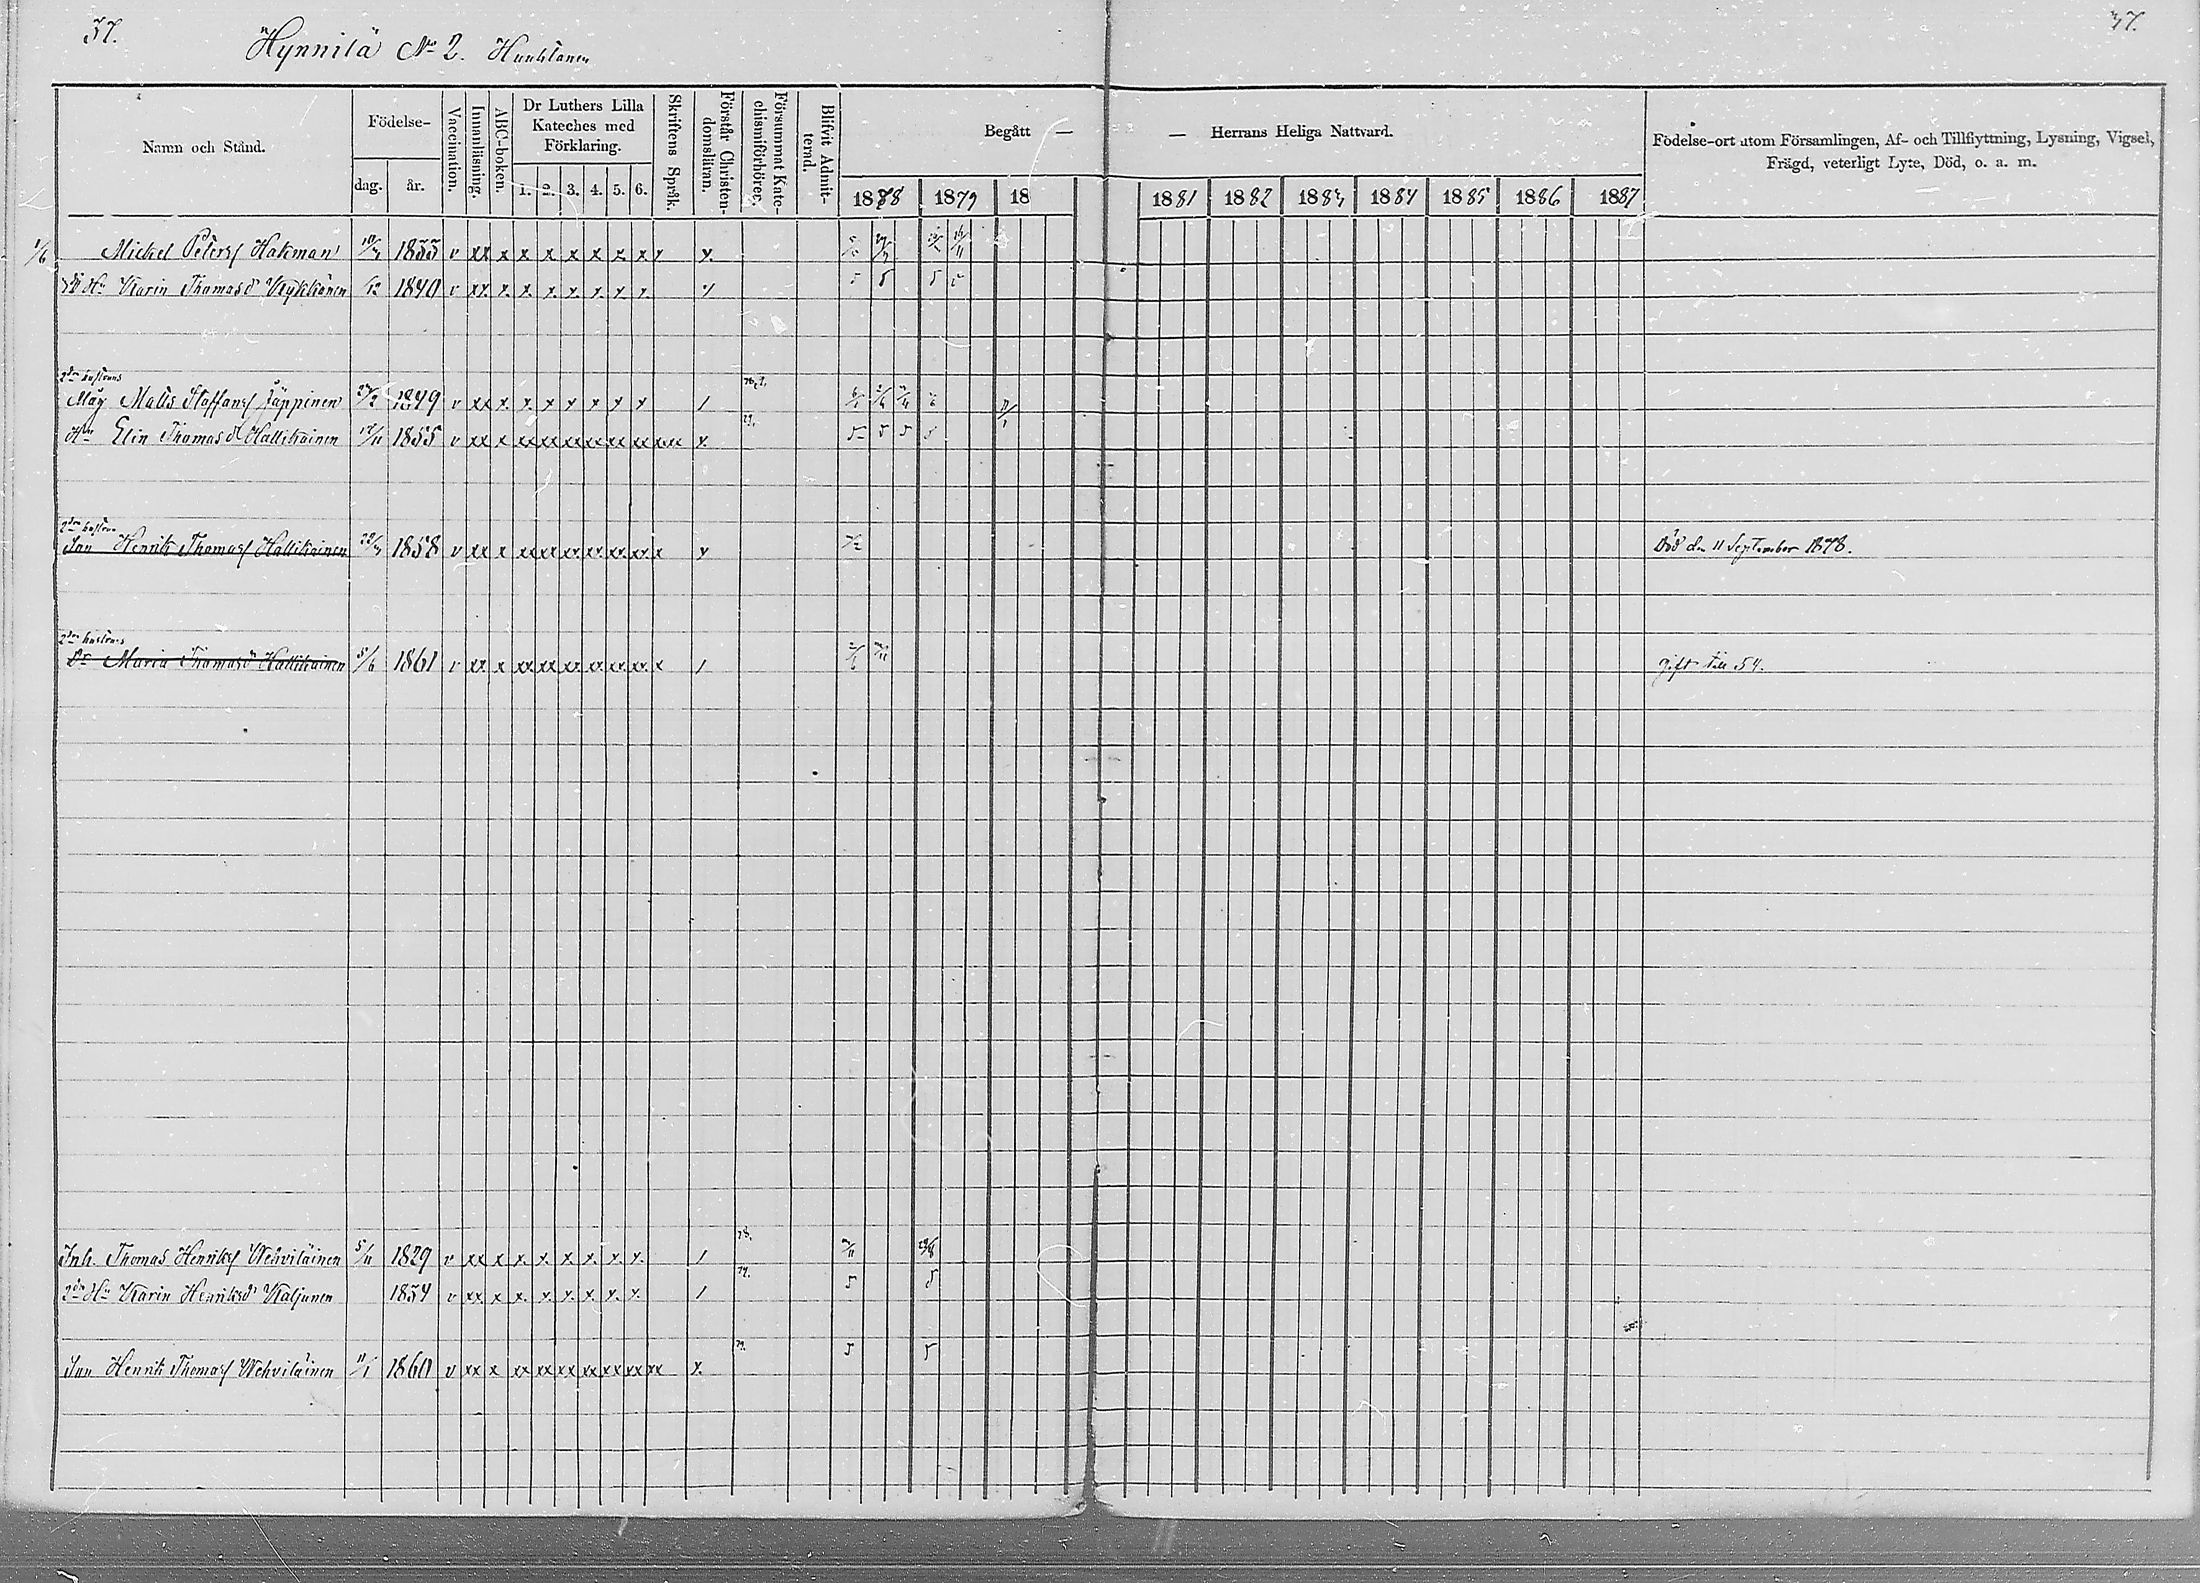 37. 37.
Hynnilä No 2.
Namn och Stånd.
Födelse-
dag. år.
Vaccination.
Innanläsning.
ABC-boken.
Dr Luthers Lilla
Kateches med
Förklaring.
1. 2. 3. 4. 5. 6.
Skriftens Språk.
Förstår Christen-
domsläran.
Försummat Kate-
chismiförhörer.
Blifvit Admit-
terad.
Begått — — Herrans Heliga Nattvard.
1878 1879 18 1881 1882 1883 1884 1885 1886 1887
Födelse-ort utom Församlingen, Af- och Tillflyttning, Lysning, Vigsel,
Frägd, veterligt Lyte, Död, o. a. m.
1/6 Mickel Petersf Hakman 1833 v xx x x x x x x x x x
Hu Karin Thomasd Kykkänen 1840 v xx x. x. x. x. x. x. x. 5 5 5 5
2dra hustruns
Måg Matts Staffansf Jäppinen 27/2 1849 v xx x. x. x x x x x /
Hu Elin Thomasd Hallikainen 1855 v xx x xx xx xx xx xx xx x 5 5 5 5
2dra hustrus
Son Henrik Thomasf Hallikainen 1858 v xx x xx xx xx xx xx xx x x Död den 11 September 1878.
2dra hustrus
Dr Maria Thomasd Hallikainen 5/6 1861 v xx x xx xx xx xx xx xx x / gift till 54.
Inh. Thomas Henriksf Wehviläinen 5/11 1829 v xx x x. x. x x. x. x. / 78.
2dra Hu Karin Henriksd Kaljunen 1834 v xx x x. x. x. x. x. x. / 79. 5 5
Son Henrik Thomasf Wehviläinen 11/1 1860 v xx x xx xx xx xx xx xx xx x. 79. 5 5